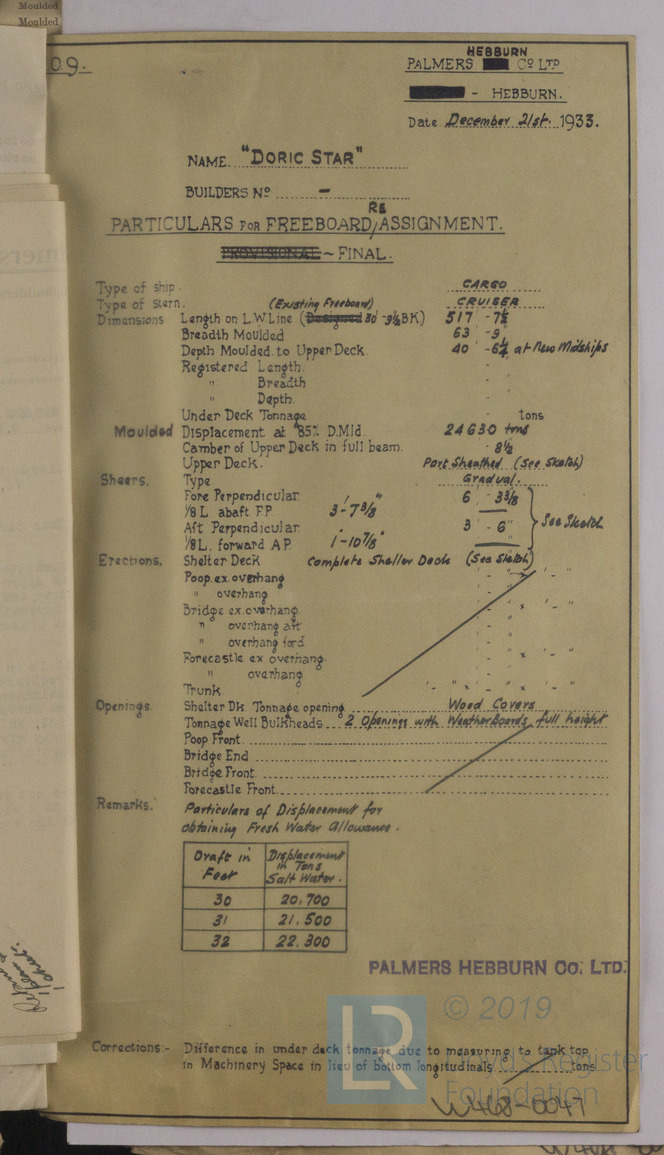 Moulded
Moulded
09.
HEBBURN
PALMERS Cº LTD
- HEBBURN.
Date December 21st. 1933.
NAME "DORIC STAR"
BUILDERS Nº -
RE
PARTICULARS FOR FREEBOARD, ASSIGNMENT.
PROVISIONAL ~ FINAL.
Type of ship. CARGO
Type of stern. CRUISER
(Existing Freeboard)
Dimensions Length on L.W Line (Designed 30'-9½ BK) 517'-7½
Breadth Moulded 63'-9"
Depth Moulded to Upper Deck. 40'-6¼ at New Midships
Registered Length. ' - "
" Breadth ' - "
" Depth. ' - "
Under Deck Tonnage tons
Moulded Displacement at 85% D.Mld. 24630 tons
Camber of Upper Deck in full beam. - 8½
Upper Deck. Part Sheathed (See Sketch)
Sheers. Type. Gradual.
Fore Perpendicular 6 - 3⅜
⅛ L abaft F.P 3'-7⅜"
Aft Perpendicular 3' - 6"
See Sketch
⅛ L. forward A.P. 1'-10⅞"
Erections. Shelter Deck Complete Shelter Deck (See Sketch)
Poop ex. overhang ' - " x ' - "
" overhang ' - "
Bridge ex. overhang. ' - " x ' - "
" overhang aft ' - "
" overhang ford ' - "
Forecastle ex overhang. ' - " x ' - "
" overhang ' - "
Trunk ' - " x ' - " x ' - "
Openings. Shelter Dk. Tonnage opening Wood Covers
Tonnage Well Bulkheads 2 Openings with Weatherboards full height
Poop Front.
Bridge End
Bridge Front
Forecastle Front
Remarks. Particulars of Displacement for
obtaining Fresh Water Allowance.
Draft in Feet Displacement in Tons Salt Water.
30 20,700
31 21,500
32 22,300
PALMERS HEBBURN CO. LTD.
© 2019
LR
Lloyd's Register
Foundation
Corrections:- Difference in under deck tonnage due to measuring to tank top
in Machinery Space in lieu of bottom longitudinals tons
W468-0047